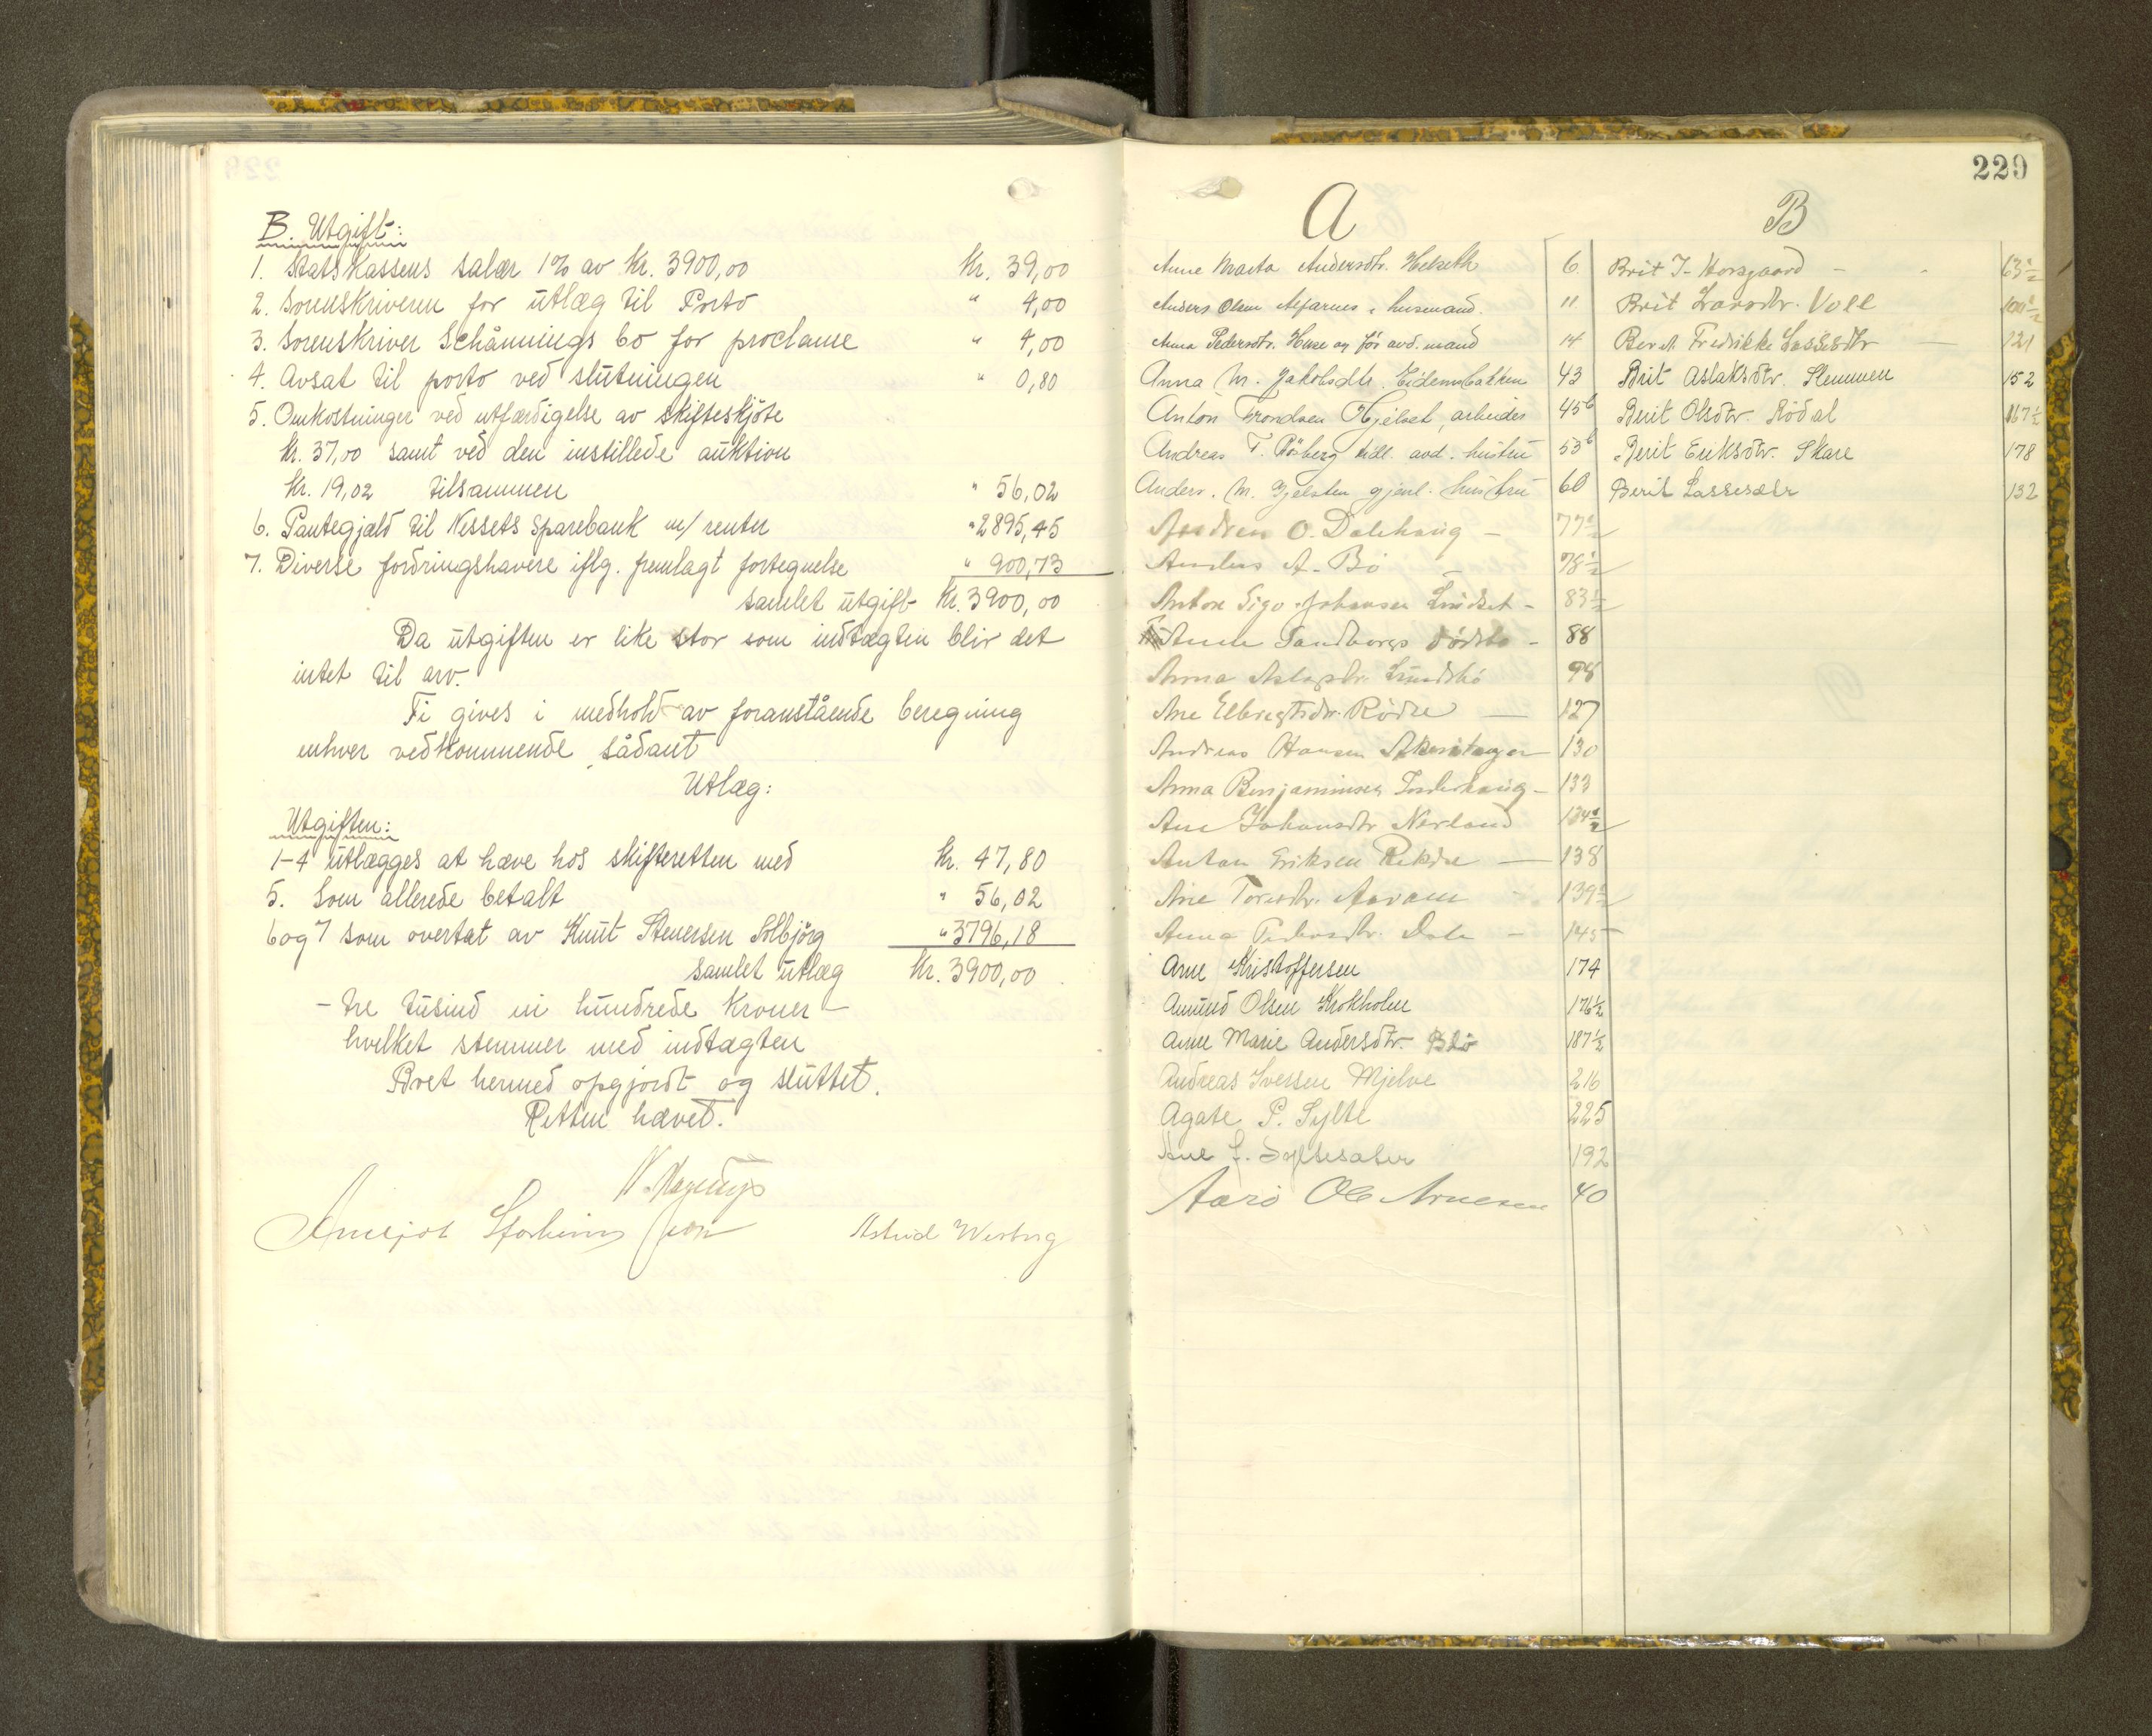 B. Utgift:
1. Statskassens salær 1% av Kr. 3900,00 Kr. 39,00
2. Sorenskriveren for utlæg til Porto " 4,00
3. Sorenskriver Schånnings bo for proclama " 4,00
4. Avsat til porto ved slutningen " 0,80
5. Omkostninger ved utfærdigelse av skifteskjöte
Kr. 37,00 samt ved den instillede auktion
Kr. 19,02 tilsammen " 56,02
6. Pantegjæld til Nessets Sparebank m/ renter " 2895,45
7. Diverse fordringshavere iflg. fremlagt fortegnelse " 900,73
samlet utgift Kr. 3900,00
Da utgiften er like stor som indtægten blir det
intet til arv.
Ti gives i medhold av foranstående beregning
enhver vedkommende sådant
Utlæg:
Utgiften:
1-4 utlægges at hæve hos skifteretten med Kr. 47,80
5. Som allerede betalt " 56,02
6 og 7 som overtat av Knut Stenersen Solbjörg " 3796,18
samlet utlæg Kr. 3900,00
- tre tusind ni hundrede Kroner -
hvilket stemmer med indtægten
Boet hermed opgjordt og sluttet.
Retten hævet.
Astrid Werberg
229
A
Anne Marta Andersdtr. Helseth 6
Anders Olsen Alfarnes, husmand. 11
Anna Pedersdtr. Huse og för avd. mand 14
Anna M. Jakobsdtr. Eidemsbakken 43
Anton Trondsen Hjelset, arbeider 45b
Andreas T. Rösberg tidl. avd. hustru 53b
Anders. M. Gjelsten gjenl. hustru 60
Andreas O. Dalehaug - 77½
Anders A. Bö - 78½
Anton Sigv. Johansen Lindset - 83½
Anne Sandborgs dödsbo - 88
Anna Aslagsdtr. Lundsbö 98
Ane Elbregtsdtr. Rödse - 127
Andreas Hansen 130
Anna Benjaminsen - 133
Ane Johansdtr Norland 134½
Anton Eriksen Rekdse - 138
Ane Toresdtr. - 139½
Anna Pedersdtr. Dale - 145
Arne Kristoffersen 174
Amund Olsen Krokholm 176½
Anne Marie Andersdtr. Blö 187½
Andreas Iversen Mjelve 216
Agate P. Sylte 225
Ane L. Syltesæter 192
Aarö Ole Arnesen 40
B
Brit J. Horsgaard - 63½
Brit Larsdtr. Voll 100½
Berit Fredrikke Lassesdtr - 121
Brit Aslaksdtr. Stemmen 152
Berit Olsdtr. Rödal 167½
Berit Eriksdtr. Skare 178
Berit Lassesætr 132